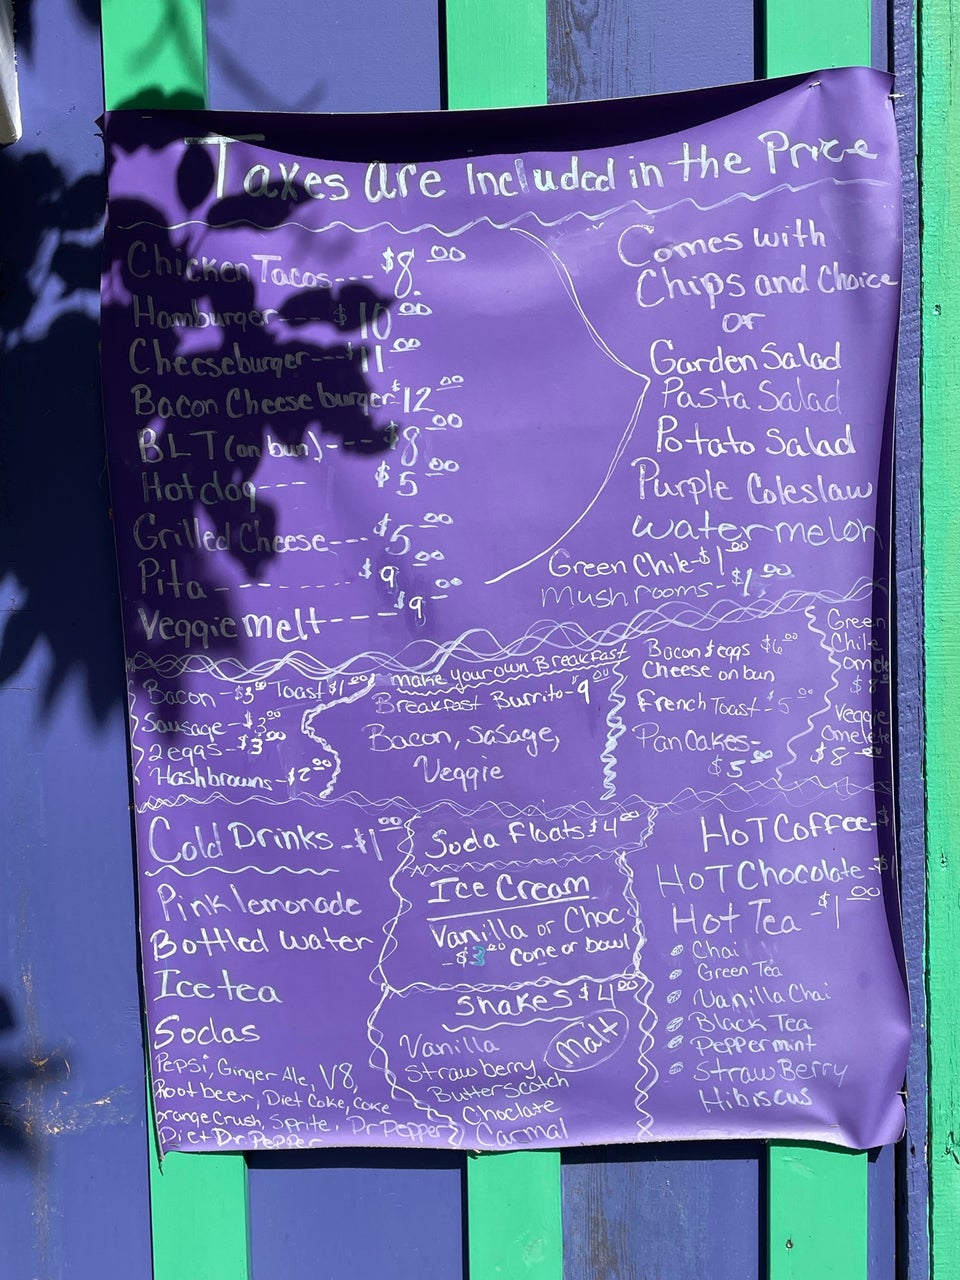 Taxes are Included in the Price
Chicken Tacos--- $8.00
Hamburger--- $10.00
Cheeseburger---$11.00
Bacon Cheese burger-$12.00
BLT (on bun)--- $8.00
Hot dog--- $5.00
Grilled Cheese--- $5.00
Pita ------------ $9.00
Veggie melt---- $9.00
Comes with
Chips and Choice
or
Garden Salad
Pasta Salad
Potato Salad
Purple Coleslaw
watermelon
Green Chile-$1.00
Mushrooms-$1.00
Bacon -$3.00 Toast $1.00
Sausage -$3.00
2 eggs -$3.00
Hashbrowns-$2.00
make your own Breakfast
Breakfast Burrito-$9.00
Bacon, Sasage,
Veggie
Bacon & eggs $6.00
Cheese on bun
French Toast-$5.00
Pancakes-
$5.00
Green
Chile
omele
$8.00
Veggie
Omelete
$8.00
Cold Drinks -$1.00
Pink lemonade
Bottled water
Ice tea
Sodas
Pepsi, Ginger Ale, V8,
Root beer, Diet Coke, Coke
orange Crush, Sprite, Dr Pepper
Diet Dr. Pepper
Soda Floats $4.00
Ice Cream
Vanilla or Choc
-$3.00 cone or bowl
Shakes $4.00
Malt
Vanilla
Strawberry
Butterscotch
Choclate
Carmal
HoT Coffee-$
HoT Chocolate-$1
Hot Tea -$1.00
Chai
Green Tea
Vanilla Chai
Black Tea
Peppermint
StrawBerry
Hibiscus